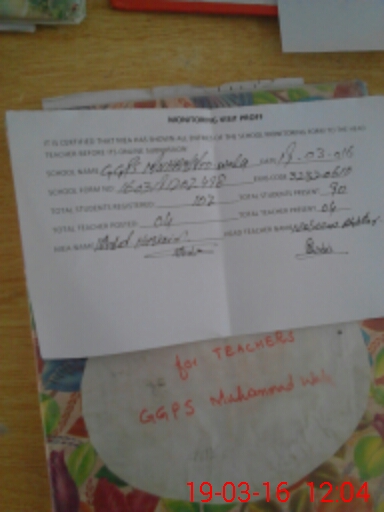 MONITORING VISIT PROFF
IT IS CERTIFIED THAT MEA HAS SHOWN ALL ENTRIES OF THE SCHOOL MONITORING FORM TO THE HEAD
TEACHER BEFORE ITS ONLINE SUBMISSION
SCHOOL NAME GGPS Muhammad wala DATE 19-03-016
SCHOOL FORM NO EMIS CODE
TOTAL STUDENTS REGISTERED 102 TOTAL STUDENTS PRESENT 90
TOTAL TEACHER POSTED 04 TOTAL TEACHER PRESENT 04
MEA NAME HEAD TEACHER NAME
for TEACHERS
GGPS Muhammad Wala
19-03-16 12:04